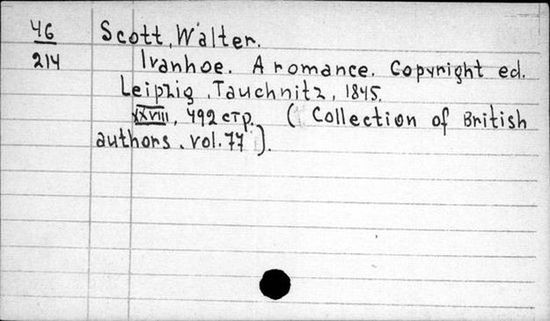 46 Scott, Walter.
214 Ivanhoe. A romance. Copyright ed.
Leipzig, Tauchnitz, 1845.
XXVIII, 492 стр. ( Collection of British
authors. vol. 77 ).